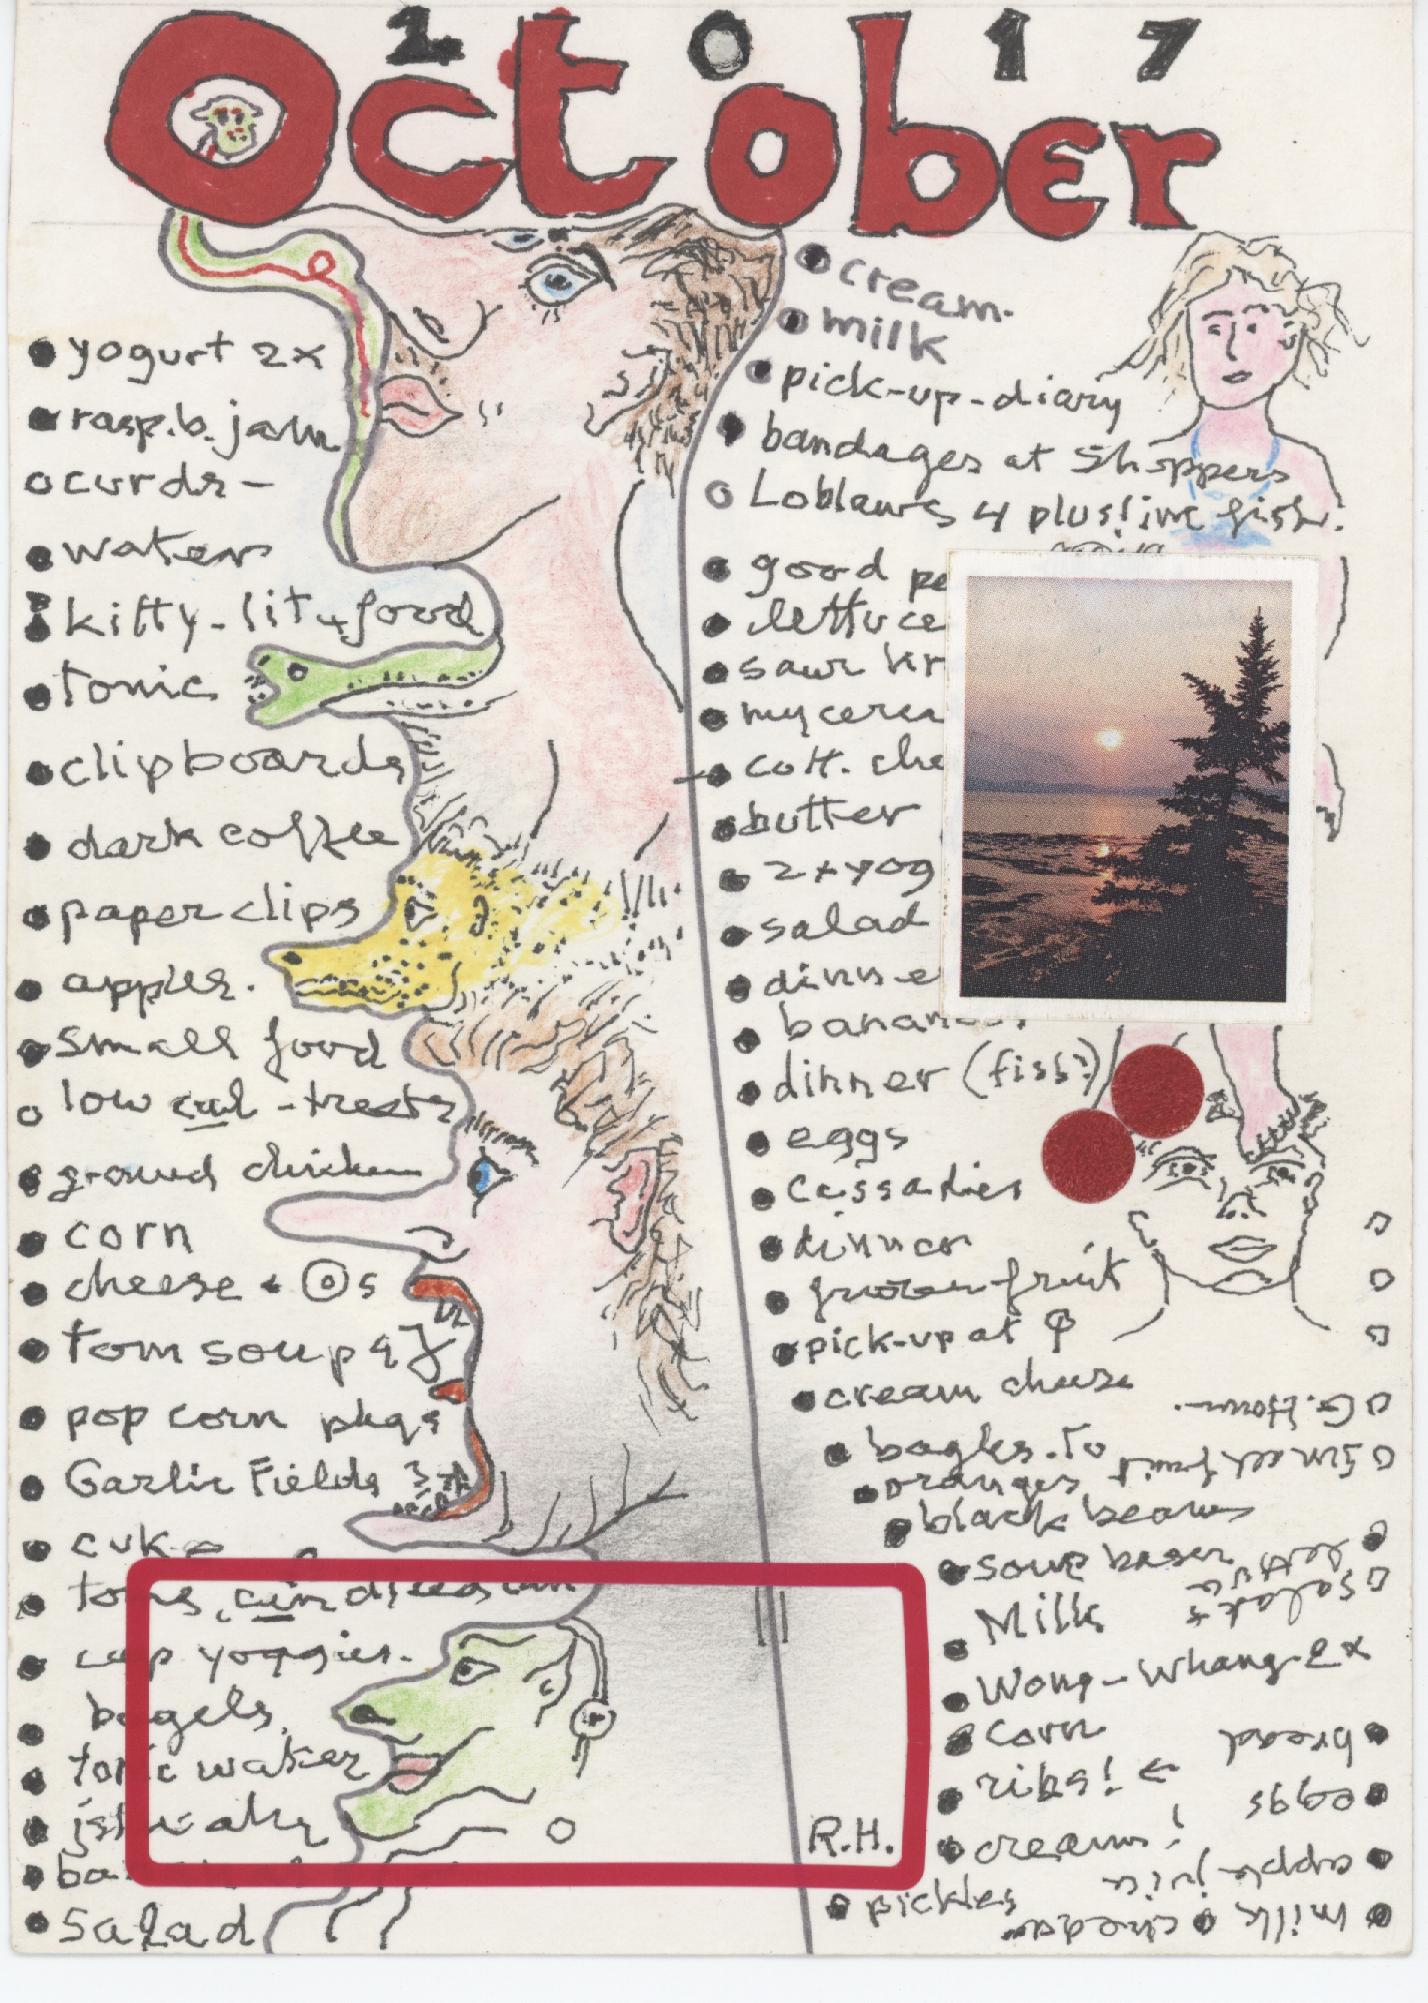 2017
October
yogurt 2x
rasp.b. jam
curds-
water
kitty-lit + food
tonic
clipboards
dark coffee
paper clips
apples.
small food
low cal - treats
ground chicken
corn
cheese + Os
tom soup
pop corn pkgs
Garlic Fields
cuke
toms,
yoggies.
bagels,
tonic water
salad
cream.
milk
pick-up-diary
bandages at Shoppers
Loblaws 4 plus! inc fish.
good
lettuce
saur kr
my cerea
cott. che
butter
2x yog
salad
dinne
banan
dinner (fish?)
eggs
dinner
frozen fruit
pick-up at
cream cheese
bagles. To
oranges
black beans
soup bases
Milk
Wong-Whang-2x
corn
ribs! ←
creams!
pickles
R.H.
fruit
lettuce
salads
bread
eggs
apple juice
milk